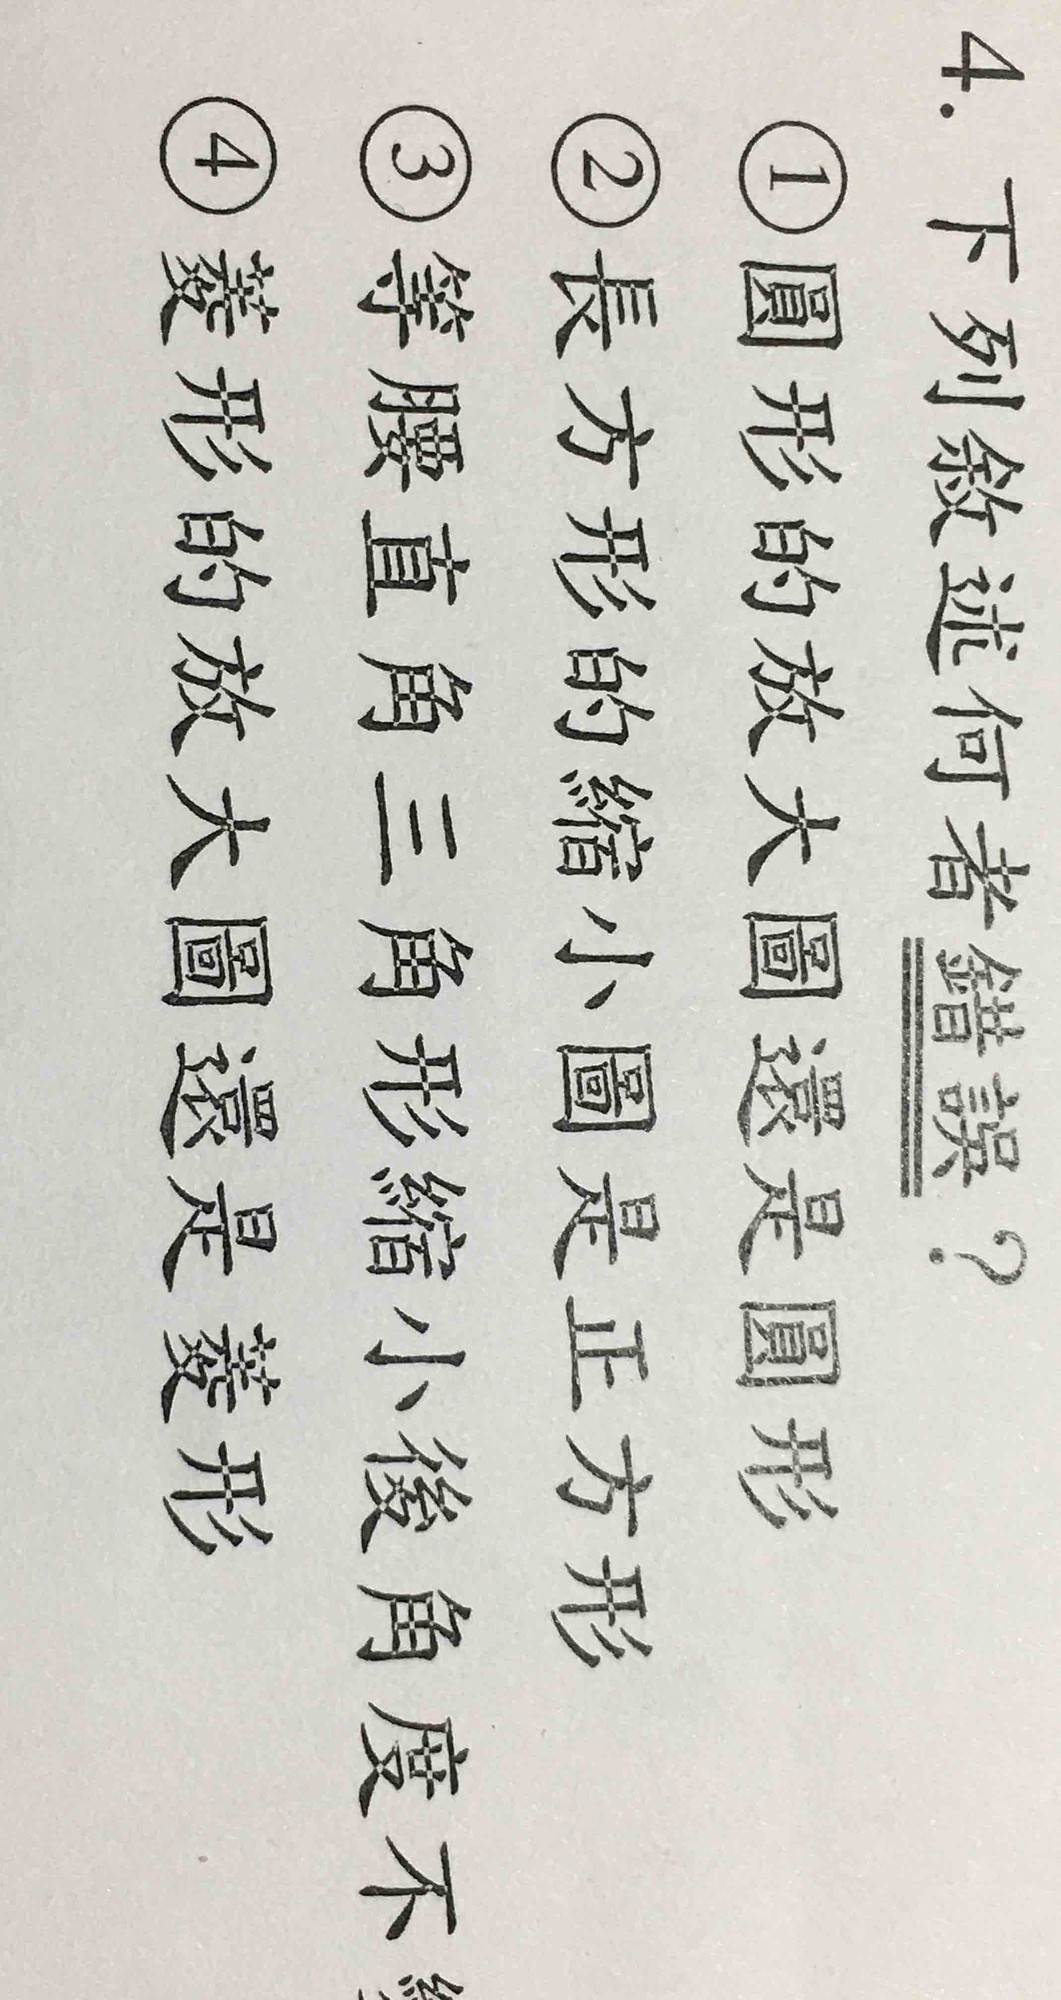 4. 下列敘述何者錯誤？
①圓形的放大圖還是圓形
②長方形的縮小圖是正方形
③等腰直角三角形縮小後角度不
④菱形的放大圖還是菱形